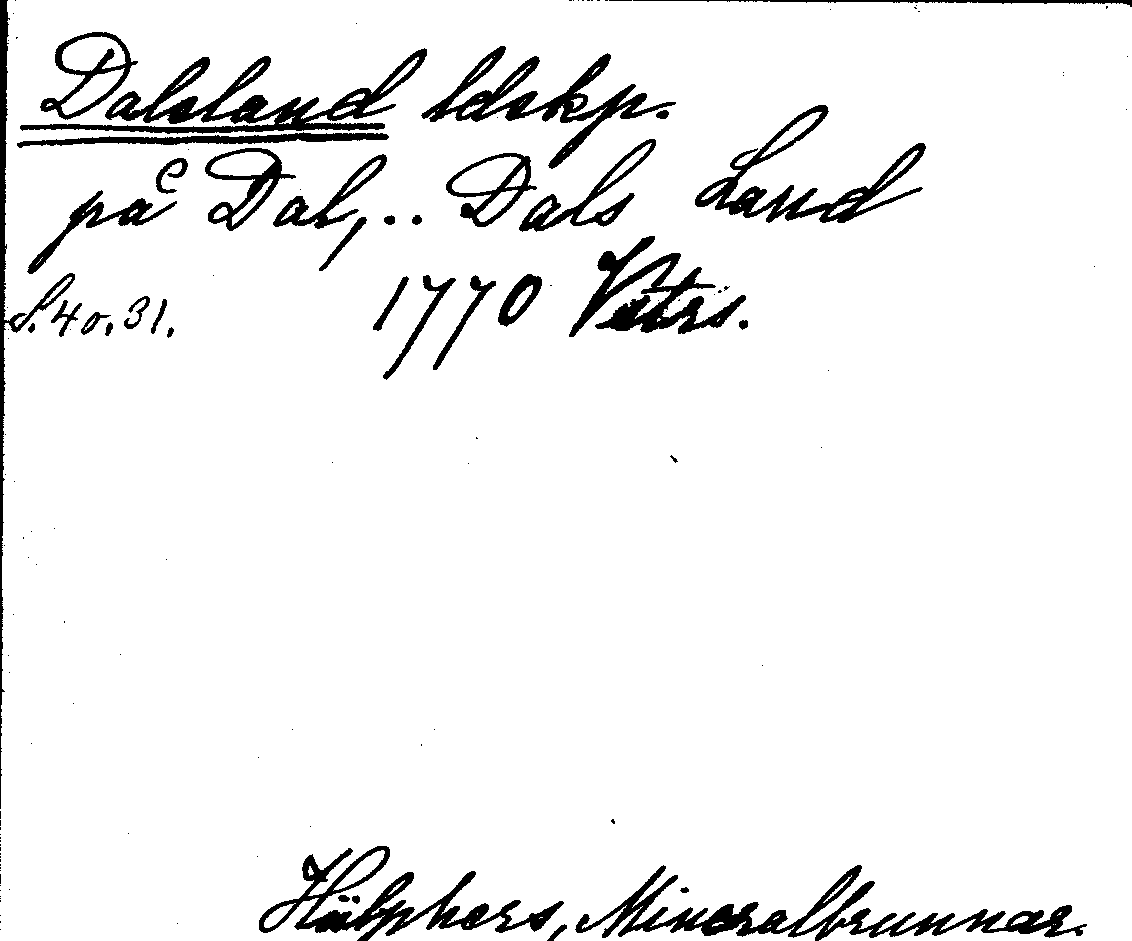 Dalsland ldskp.
på Dal,.. Dals Land
S. 4 o. 31. 1770 Västrs.
Hülphers, Mineralbrunnar.